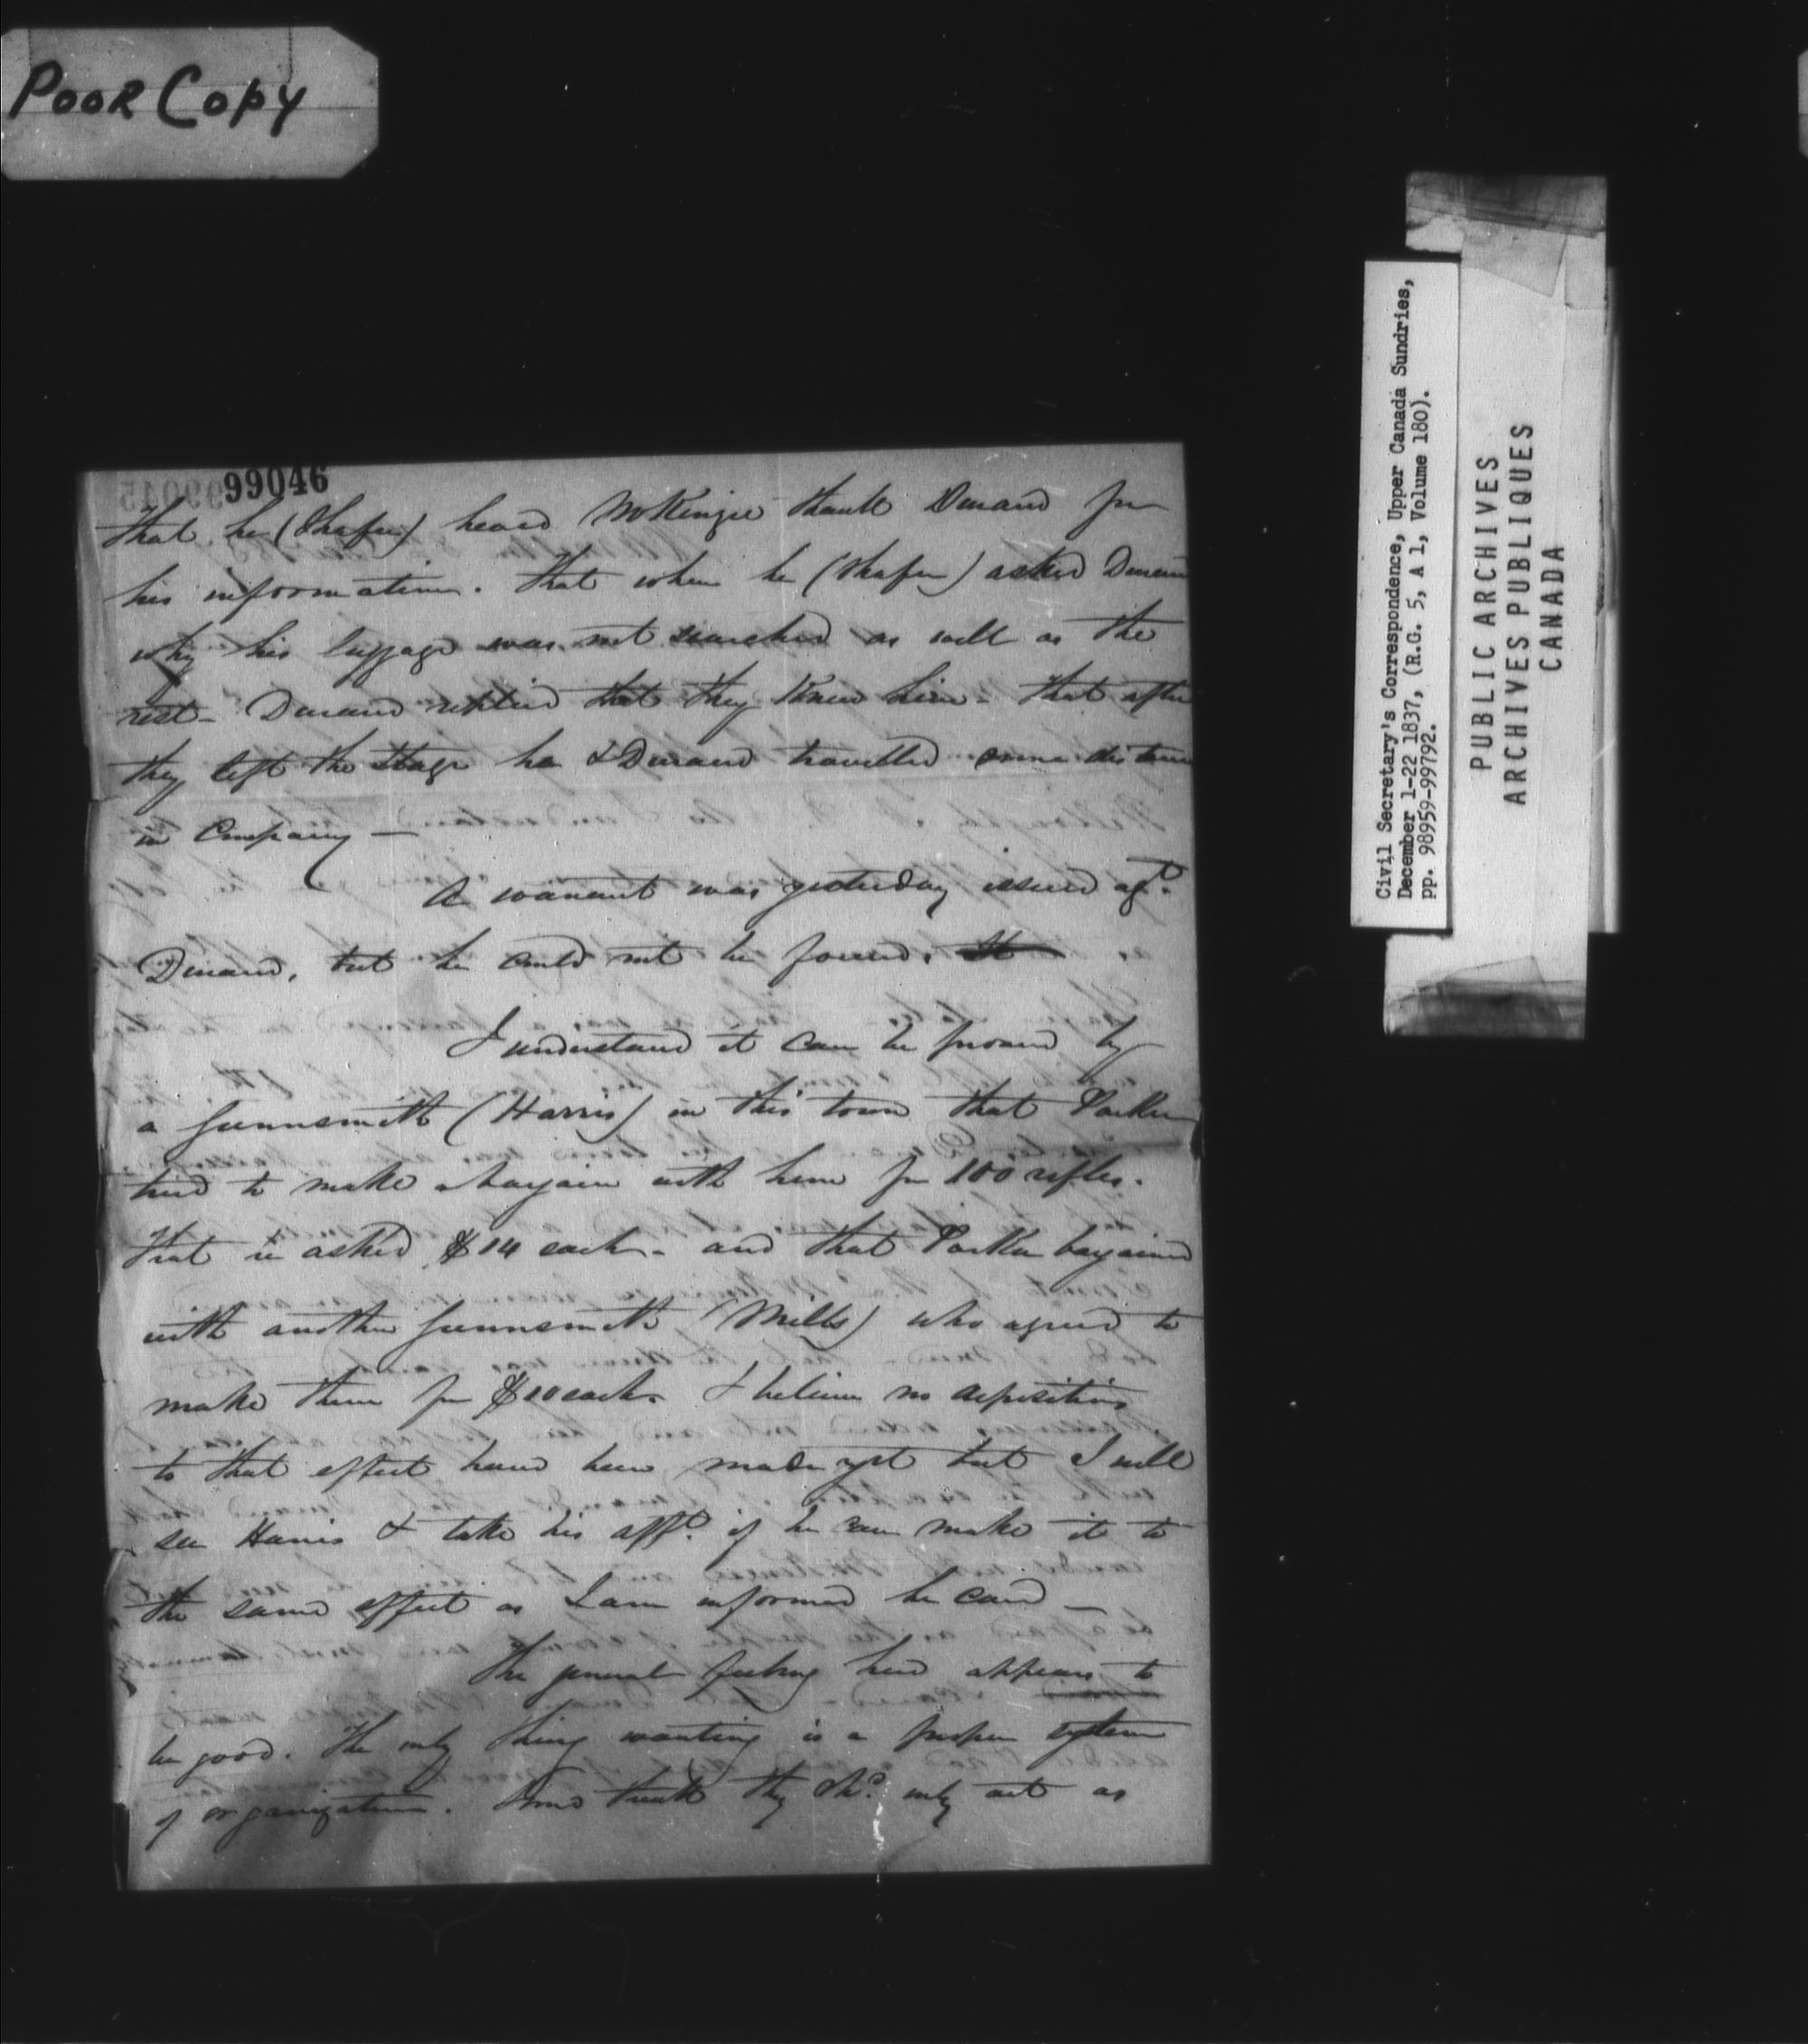 Poor Copy
99046
that he (Shafer) heard McKenzie thank Durand for
his information. That when he (Shafer) asked Durand
why his luggage was not searched as well as the
rest – Durand replied that they knew him – That after
they left the stage he & Durand travelled some distance
in Company –
A warrant was yesterday issued agt.
Durand, but he could not be found.
I understand it can be proved by
a Gunnsmith (Harris) in this town that Parker
tried to make a bargain with him for 100 rifles.
That he asked $14 each – and that Parker bargained
with another Gunnsmith (Mills) who agreed to
make them for $10 each. I believe no depositions
to that effect have been made yet but I will
see Harris & take his afft. if he can make it to
the same effect as I am informed he can –
The general feeling here appears to
be good. The only thing wanting is a proper system
of organization. Some think they shd. only act as
Civil Secretary's Correspondence, Upper Canada Sundries,
December 1-22 1837, (R.G. 5, A 1, Volume 180).
pp. 98959-99792.
PUBLIC ARCHIVES
ARCHIVES PUBLIQUES
CANADA